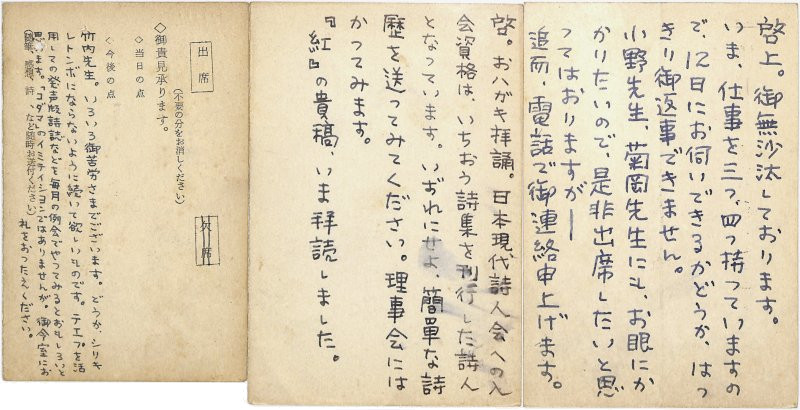 啓上。御無沙汰しております。
いま、仕事を三つ、四つ持っていますの
で、12日にお伺いできるかどうか、はっ
きり御返事できません。
小野先生、菊岡先生にも、お眼にか
かりたいので、是非出席したいと思
ってはおりますが―
追而、電話で御連絡申上げます。
啓。おハガキ拝誦。日本現代詩人会への入
会資格は、いちおう詩集を刊行した詩人
となっています。いづれにせよ、簡單な詩
歴を送ってみてください。理事会には
かってみます。
『紅』の貴稿、いま拝読しました。
出席
欠席
(不要の分をお消しください)
◇御貴見承ります。
◇当日の点
◇今後の点
竹内先生。いろいろ御苦労さまでございます。どうか、シリキ
レトンボにならないように続いて欲しいものです。テエプを活
用しての発声版詩誌などを毎月の例会でやってみるとおもしろいと
思います。「コダマ」のイミテイションではありませんが。御令室にお
礼をおつたえください。
感想、詩、など随時お送付ください)